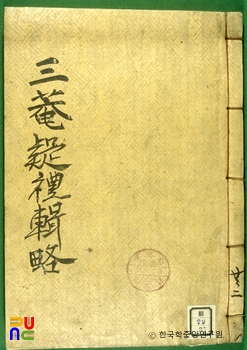 三菴疑禮輯略
PUNC
ⓒ 한국학중앙연구원